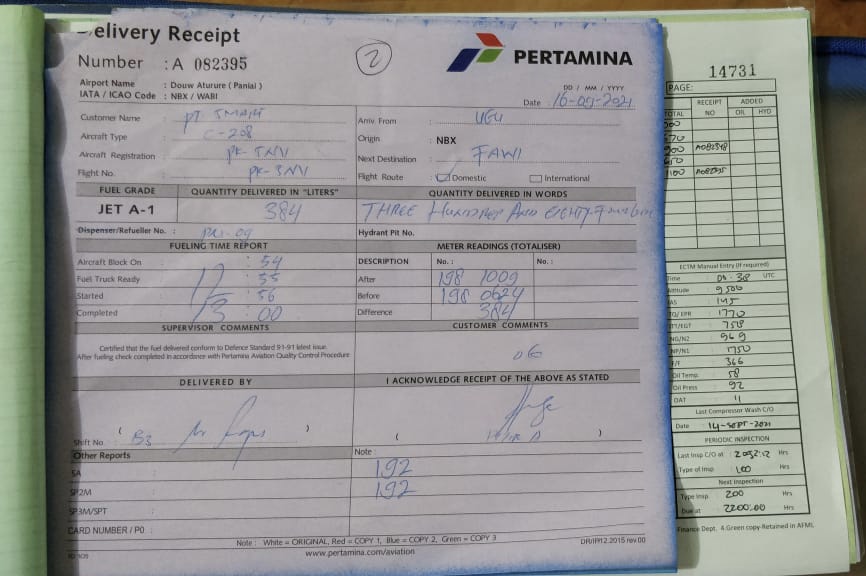 elivery Receipt
Number : A 082395
2
PERTAMINA
Airport Name : Douw Aturure ( Paniai )
IATA / ICAO Code : NBX / WABI
DD / MM / YYYY
Date : 16-09-2021
Customer Name : PT SMART
Aircraft Type : C-208
Aircraft Registration : PK-SNV
Flight No. : PK-SNV
Arriv. From : UGU
Origin : NBX
Next Destination : FAWI
Flight Route : Domestic International
FUEL GRADE QUANTITY DELIVERED IN "LITERS" QUANTITY DELIVERED IN WORDS
JET A-1 384 THREE HUNDRED AND EIGHTY-
Dispenser/Refueller No. : Hydrant Pit No. :
FUELING TIME REPORT METER READINGS (TOTALISER)
Aircraft Block On : 54 DESCRIPTION No. : No. :
Fuel Truck Ready 12 : 55 After 198 1009
Started : 56 Before 198 0624
Completed 13 : 00 Difference 384
SUPERVISOR COMMENTS CUSTOMER COMMENTS
Certified that the fuel delivered conform to Defence Standard 91-91 latest issue.
After fueling check completed in accordance with Pertamina Aviation Quality Control Procedure
DELIVERED BY I ACKNOWLEDGE RECEIPT OF THE ABOVE AS STATED
Shift No. ( ) ( )
Other Reports Note :
SA : 192
SP2M : 192
SP3M/SPT :
CARD NUMBER / P0 :
Note : White = ORIGINAL, Red = COPY 1, Blue = COPY 2, Green = COPY 3
www.pertamina.com/aviation
DR/IP/12.2015 rev 00
14731
PAGE:
TOTAL RECEIPT NO ADDED OIL HYD
A082395
ECTM Manual Entry (If required)
Time : 00 : 38 UTC
Altitude : 9500
IAS : 145
TQ/ EPR : 1770
ITT/EGT : 758
NG/N2 : 969
NP/N1 : 1750
F/F : 366
Oil Temp : 58
Oil Press : 92
OAT : 11
Last Compressor Wash C/O
Date : 14-SEPT-2021
PERIODIC INSPECTION
Last Insp C/O at : Hrs
Type of Insp : 100 Hrs
Next Inspection
Type Insp. : 200 Hrs
Due at : 2200:00 Hrs
Finance Dept. 4.Green copy-Retained in AFML